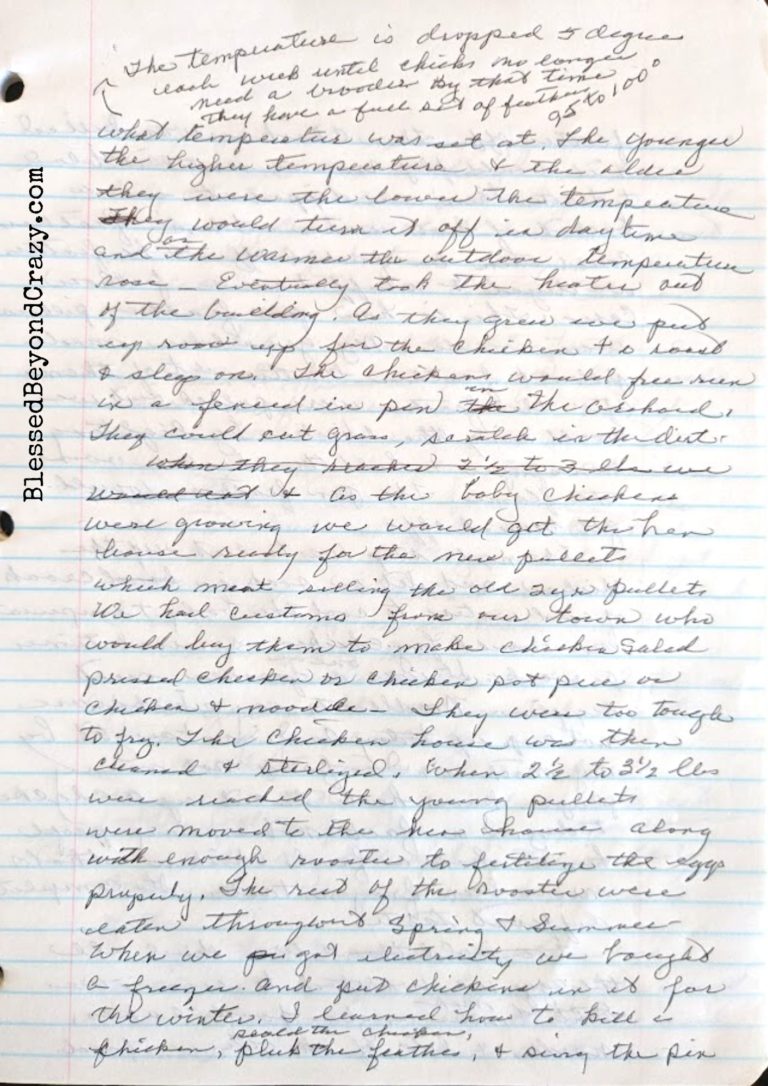 The temperature is dropped 5 degree
each week until chicks no longer
need a brooder By that time
They have a full set of feathers
95 to 100°
what temperatur was set at. The younger
the higher temperature & the older
they were the lower the temperature
They would turn it off in daytime
and or the warmer the outdoor temperature
rose - Eventually took the heater out
of the building. As they grew we put
up roost up for the chicken to roost
& sleep on. The chickens would free run
in a fenced in pen the in the Orchard.
They could eat grass, scratch in the dirt.
When they reached 2½ to 3 lbs we
would eat & As the baby chickens
were growing we would get the hen
house ready for the new pullets
which meat selling the old 2yr pullets
We had customs from our town who
would buy them to make chicken salad
pressed chicken or chicken pot pie or
chicken & noodle - They were too tough
to fry. The chicken house was then
cleaned & sterlized. When 2½ to 3½ lbs
were reached the young pullets
were moved to the hen house along
with enough rooster to fertilize the eggs
properly. The rest of the rooster were
eaten throughout Spring & Summer
When we got electricity we bought
a freezer and put chickens in it for
the winter. I learned how to kill a
scald the chicken,
chicken, pluk the feathes, & sing the pin
BlessedBeyondCrazy.com